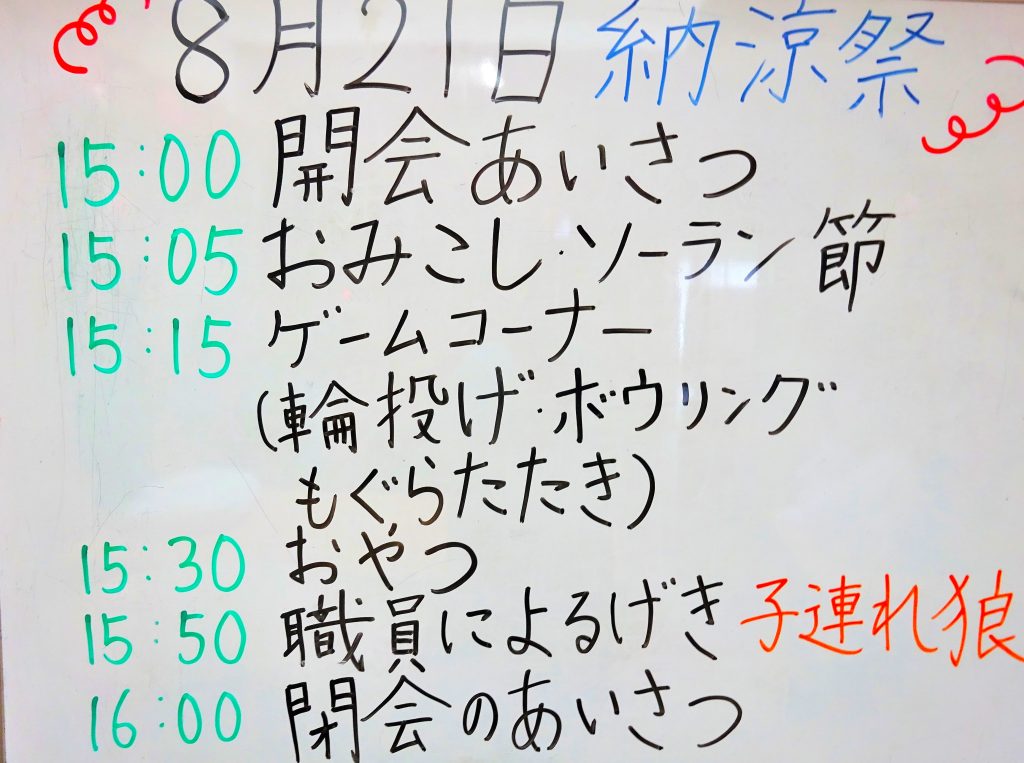 8月21日 納涼祭
15:00 開会あいさつ
15:05 おみこし・ソーラン節
15:15 ゲームコーナー
(輪投げ・ボウリング
もぐらたたき)
15:30 おやつ
15:50 職員によるげき 子連れ狼
16:00 閉会のあいさつ